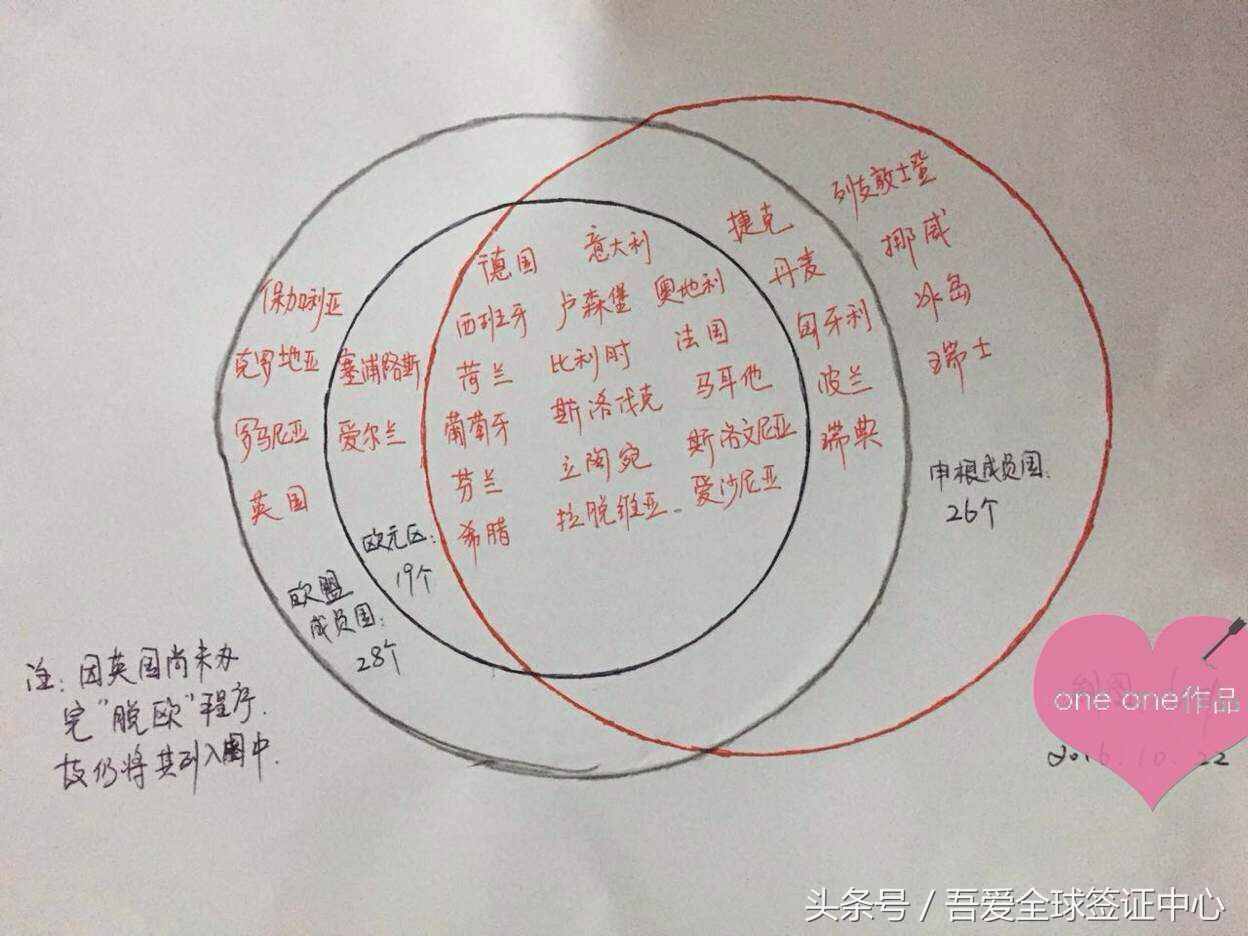 列支敦士登
捷克
挪威
德国 意大利
丹麦
保加利亚
西班牙 卢森堡 奥地利
冰岛
匈牙利
克罗地亚 塞浦路斯
荷兰 比利时 法国
瑞士
波兰
葡萄牙 斯洛伐克 马耳他
罗马尼亚 爱尔兰
瑞典
芬兰 立陶宛 斯洛文尼亚
申根成员国:
26个
英国
希腊 拉脱维亚 爱沙尼亚
欧元区:
19个
欧盟
成员国:
28个
注:因英国尚未办
完"脱欧"程序.
故仍将其列入图中.
one one作品
2016.10.22
头条号/吾爱全球签证中心